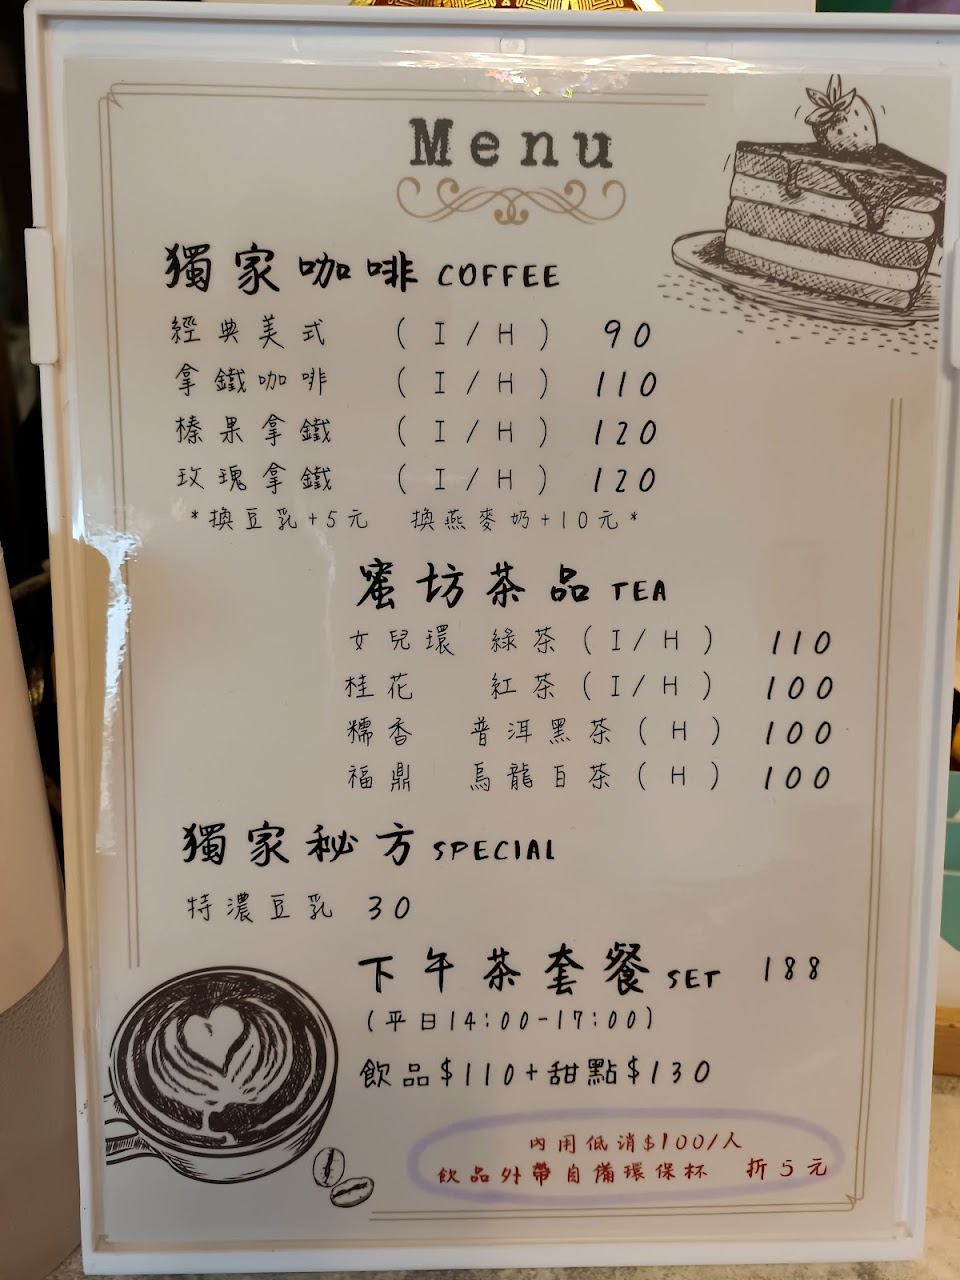 Menu
獨家咖啡 COFFEE
經典美式 (I/H) 90
拿鐵咖啡 (I/H) 110
榛果拿鐵 (I/H) 120
玫瑰拿鐵 (I/H) 120
*換豆乳+5元 換燕麥奶+10元*
蜜坊茶品 TEA
女兒環 綠茶(I/H) 110
桂花 紅茶(I/H) 100
糯香 普洱黑茶(H) 100
福鼎 烏龍白茶(H) 100
獨家秘方 SPECIAL
特濃豆乳 30
下午茶套餐 SET 188
(平日14:00-17:00)
飲品$110+甜點$130
內用低消$100/人
飲品外帶自備環保杯 折5元